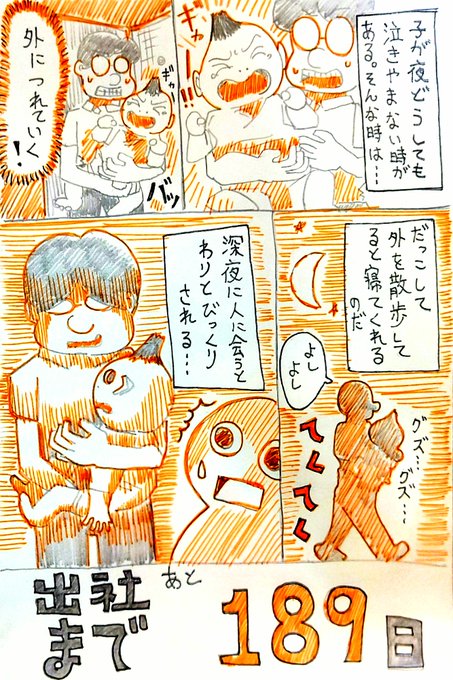 子が夜どうしても
泣きやまない時が
ある。そんな時は…
ギャー
!!
ギャー
バッ
外につれていく
!
だっこして
外を散歩して
ると寝てくれる
のだ
よし
よし
グズ…
グズ…
てくてく
深夜に人に会うと
わりとびっくり
される…
出社
まで
あと
189日